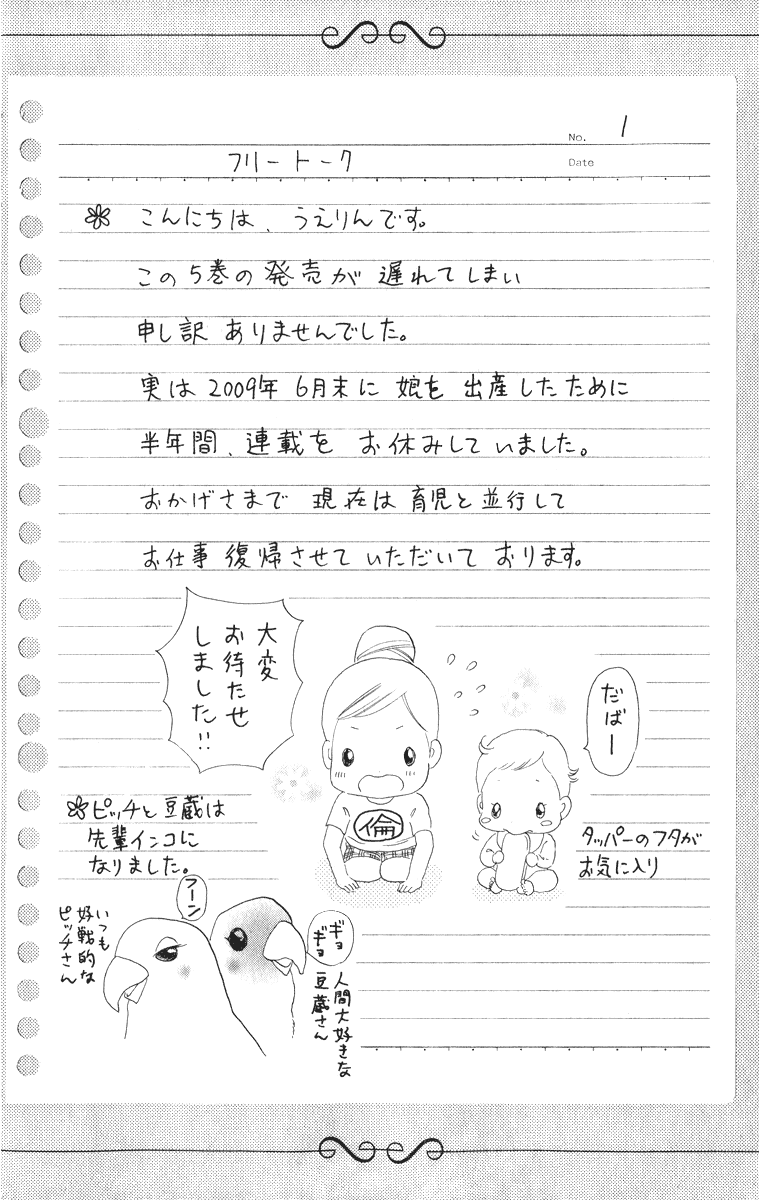 No. 1
フリートーク
Date
こんにちは、うえりんです。
この5巻の発売が遅れてしまい
申し訳ありませんでした。
実は2009年6月末に娘を出産したために
半年間、連載をお休みしていました。
おかげさまで現在は育児と並行して
お仕事復帰させていただいております。
大変
お待たせ
しました!!
倫
だばー
タッパーのフタが
お気に入り
ピッチと豆蔵は
先輩インコに
なりました。
フーン
いつも
好戦的な
ピッチさん
ギョ
ギョ
人間大好きな
豆蔵さん